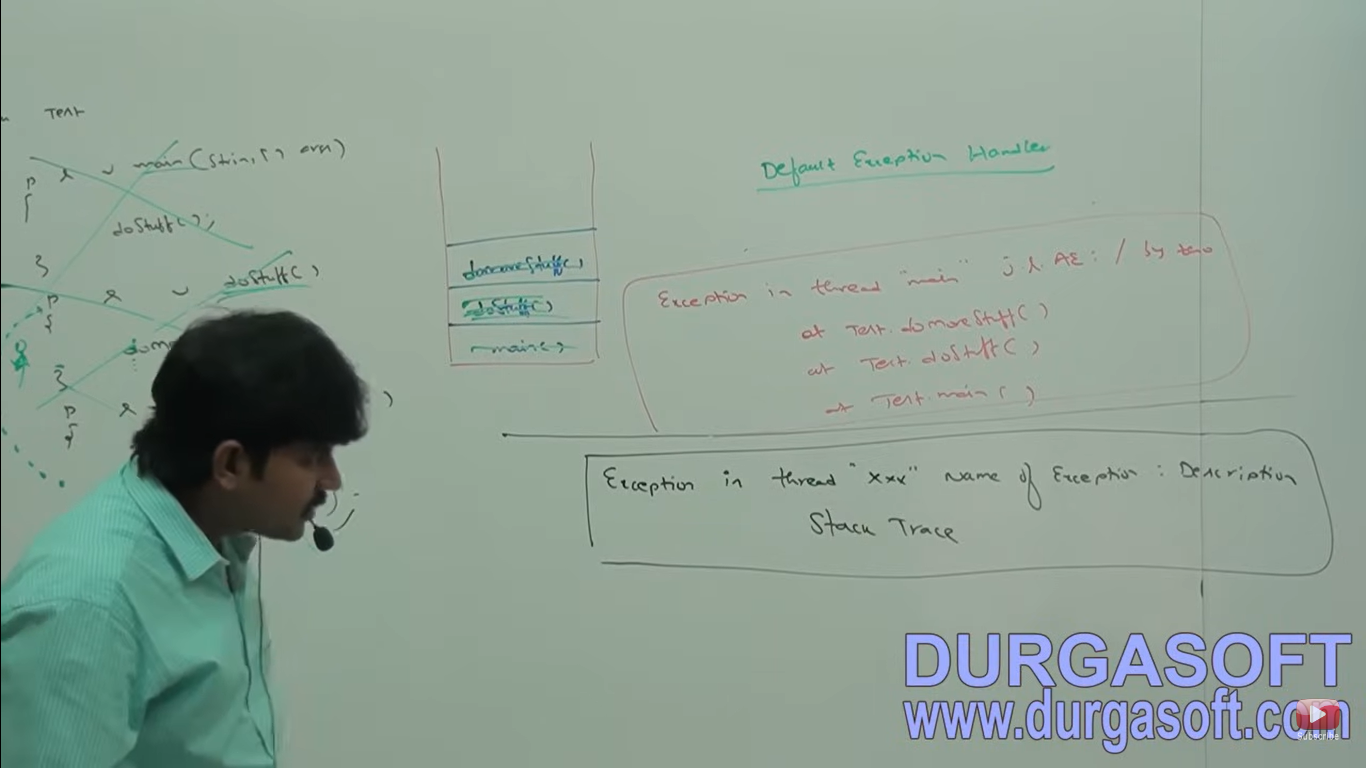 Test
p s v main(String[] args)
{
doStuff();
}
p s v doStuff()
{
}
p s
{
)
domoreStuff()
doStuff()
main()
Default Exception Handler
Exception in thread "main" j.l.AE: / by zero
at Test.domoreStuff()
at Test.doStuff()
at Test.main()
Exception in thread "xxx" Name of Exception : Description
Stack Trace
DURGASOFT
www.durgasoft.com
Subscribe